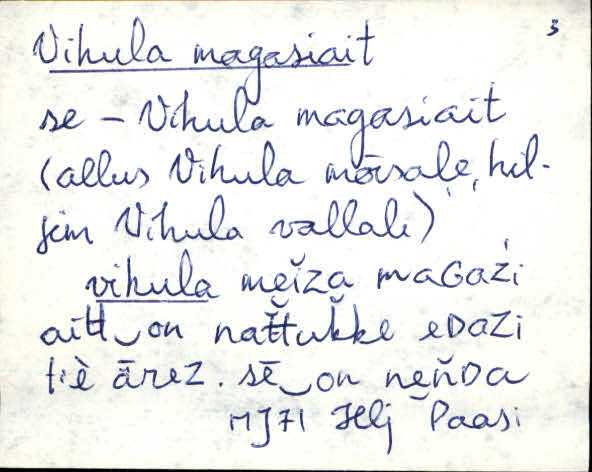 3
Vihula magasiait
se – Vihula magasiait
(allus Vihula mõisale, hil-
jem Vihula vallale)
vihula mĕiza maGaźi
ait̆t‿on nat̆tuk̆ke eDaZi
tiè ārez. sē‿on neňDa
MJ71 Hlj Paasi